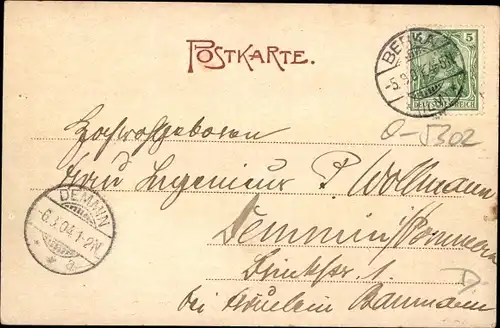 POSTKARTE.
5
BERKA
DEUTSCHES REICH
O-5302
Hochwohlgeboren
Frau Ingenieur P. Wollmann
Demmin i/Pommern
1.
bei Fräulein Baumann
D
DEMMIN
6.3.04.1-2N
* a